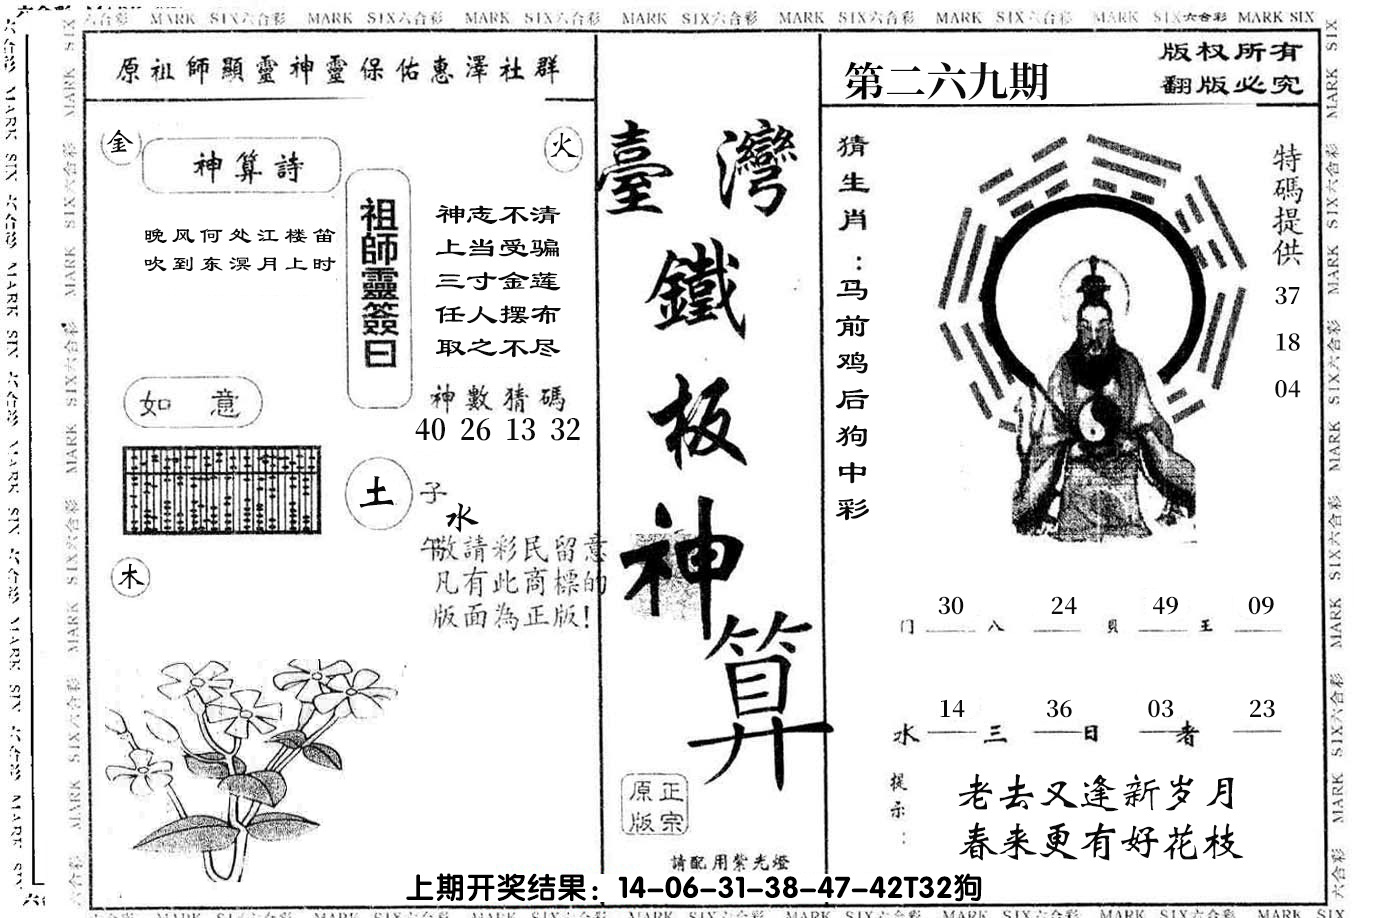 MARK SIX六合彩 MARK SIX六合彩 MARK SIX六合彩 MARK SIX六合彩 MARK SIX六合彩 MARK SIX六合彩 MARK SIX六合彩 MARK SIX
原祖師顯靈神靈保佑惠澤社群
金
神算詩
火
晚风何处江楼笛
吹到东溟月上时
祖師靈簽曰
神志不清
上当受骗
三寸金莲
任人摆布
取之不尽
神數猜碼
40 26 13 32
如意
土
子
水
午
敬請彩民留意
凡有此商標的
版面為正版!
木
臺灣
鐵
板
神
算
正宗
原版
請配用紫光燈
第二六九期
版权所有
翻版必究
猜生肖:马前鸡后狗中彩
特碼提供
37
18
04
30 24 49 09
门 八 貝 王
14 36 03 23
水 三 日 者
提示:
老去又逢新岁月
春来更有好花枝
上期开奖结果：14-06-31-38-47-42T32狗